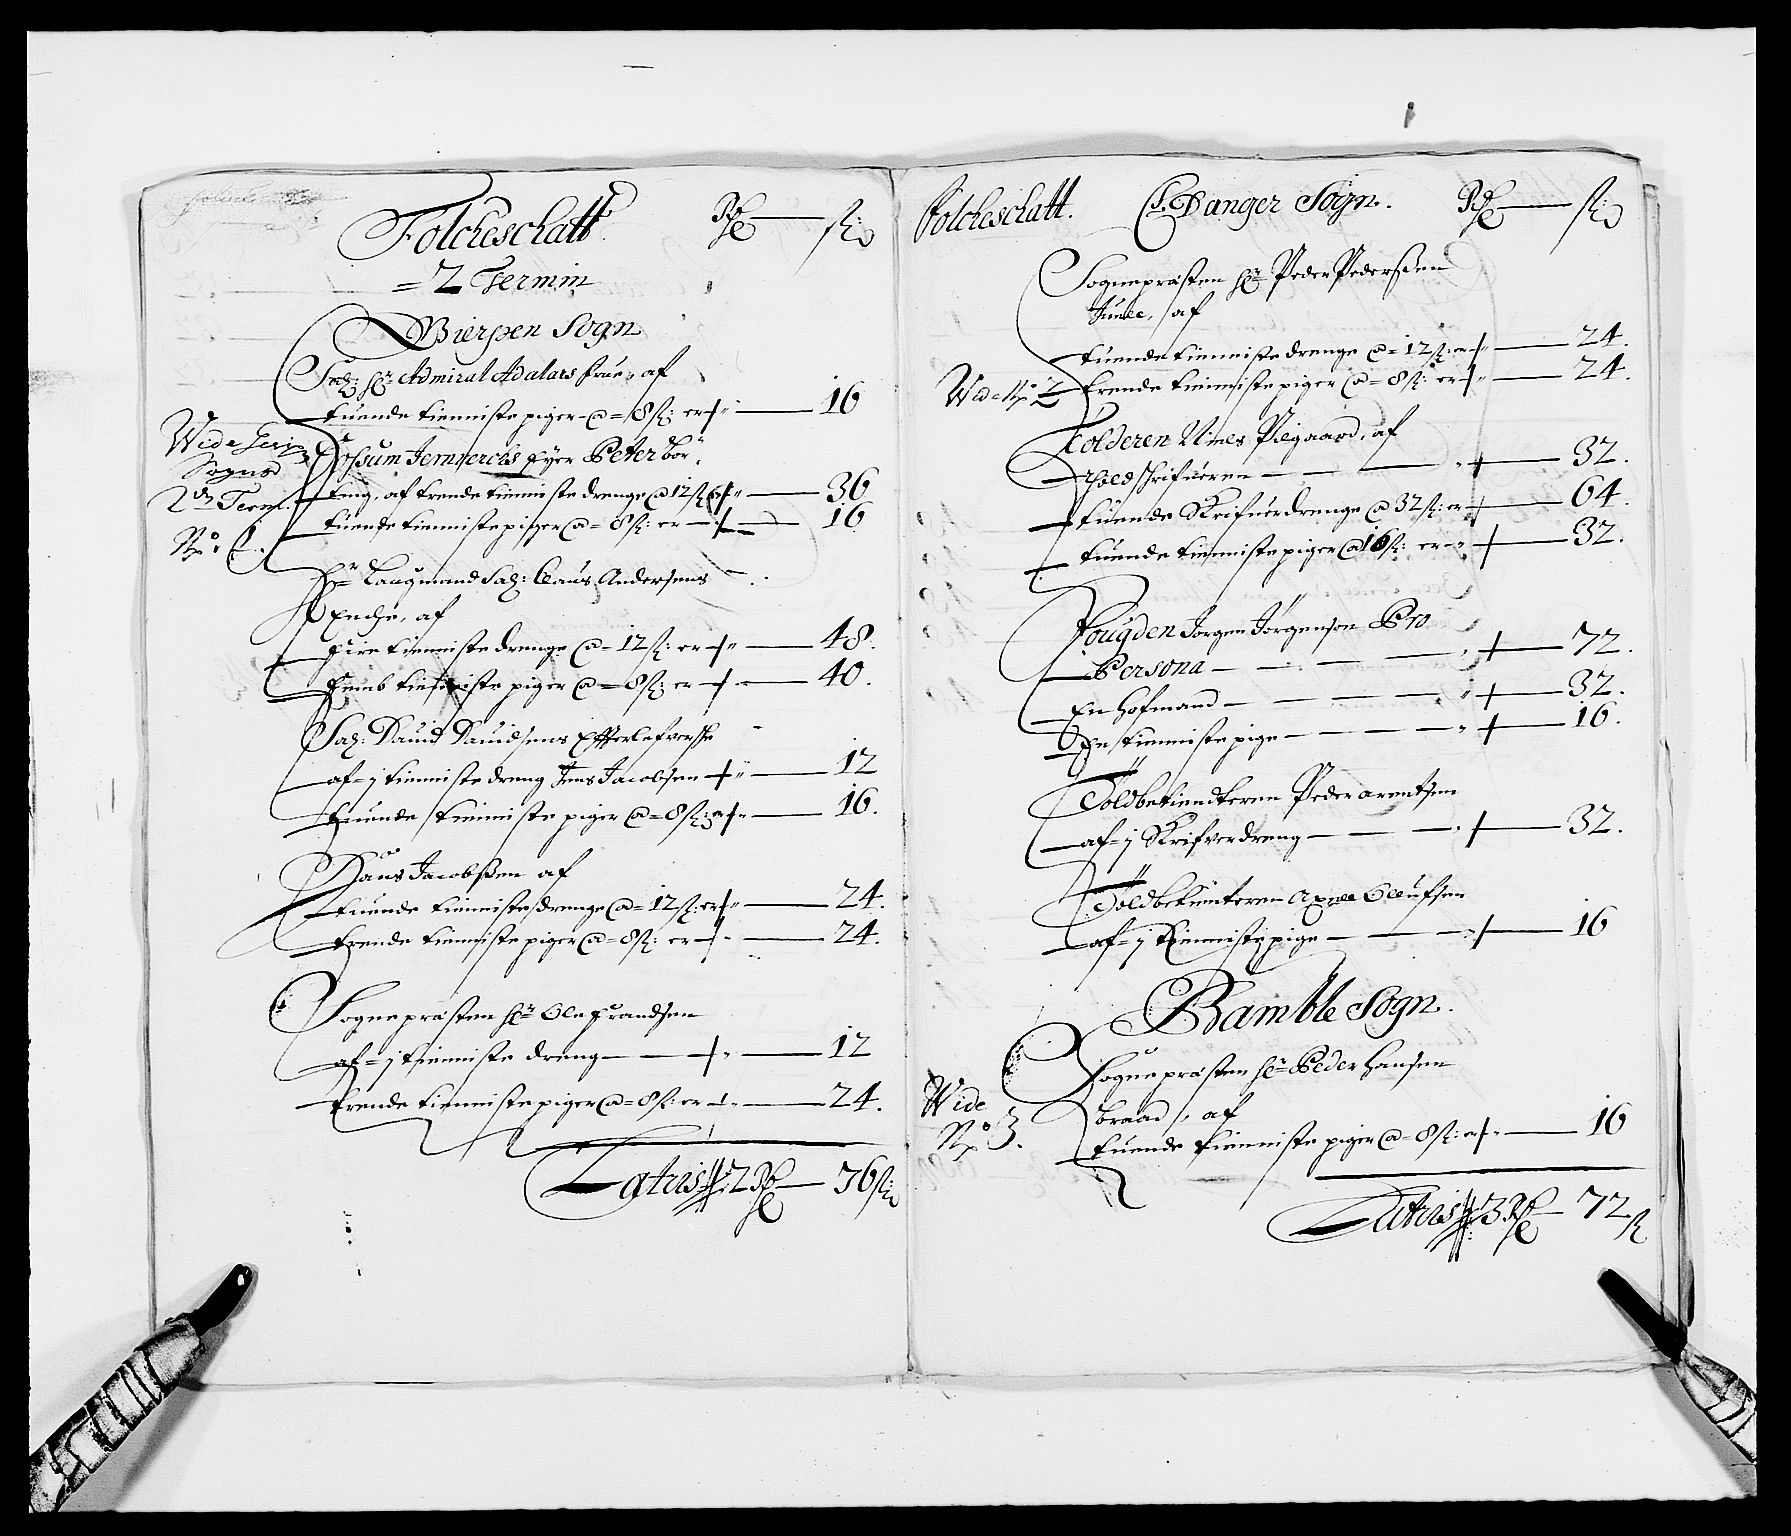 Folcheschatt. Rdr — sk
= 2 Termin
Gierpen Sogn
Sal: Hr: Admiral Adalars frue, af
tuende tienniste piger @ = 8 sk: er — 16
Fossum Jernverchs Eyer Peter Bør
ting, af trende tienniste drenge @ 12 sk er — 36
tuende tienniste piger @ = 8 sk: er — 16
Wide Gierp
Sogns
2den Term.
No: 1.
Hr: Laugmand Sal: Claus Andersens
Enche, af
fire tienniste drenge @ = 12 sk: er — 48.
Femb tienniste piger @ = 8 sk: er — 40.
Sal: Dauid Dauidsens Efterlefverske
af = j tienniste dreng Jens Jacobsen — 12
tuende tienniste piger @ = 8 sk: er — 16.
Hans Jacobßen af
tuende tienniste drenge @ = 12 sk: er — 24.
trende tienniste piger @ = 8 sk: er — 24.
Sogneprasten Hr Ole Frandsen
af = j tienniste dreng — 12
trende tienniste piger @ = 8 sk: er — 24.
Latris 2 Rdr — 76 sk
Folcheschatt. Eidanger Sogn. Rdr — sk
Sogneprasten Hr Peder Pederßen
af
tuende tienniste drenge @ = 12 sk: er — 24.
Wide No 2 trende tienniste piger @ = 8 sk: er — 24.
Tolderen Niels Pilgaard, af
— 32.
tuende Skrifuerdrenge @ 32 sk: er — 64.
tuende tienniste piger @ 16 sk: er — 32.
Fougden Jorgen Jørgensen Pro
Persona — 72.
En hofmand — 32.
En tienniste pige — 16.
Toldbetienteren Peder arentsen
af = j Skrifverdreng — 32.
Toldbetienteren Axell Olufsen
af = j tienniste pige — 16
Bamble Sogn.
Sogneprasten Hr Peder Hansen
Wide braad, af
No 3. tuende tienniste piger @ = 8 sk: er — 16
Latris 3 Rdr — 72 sk